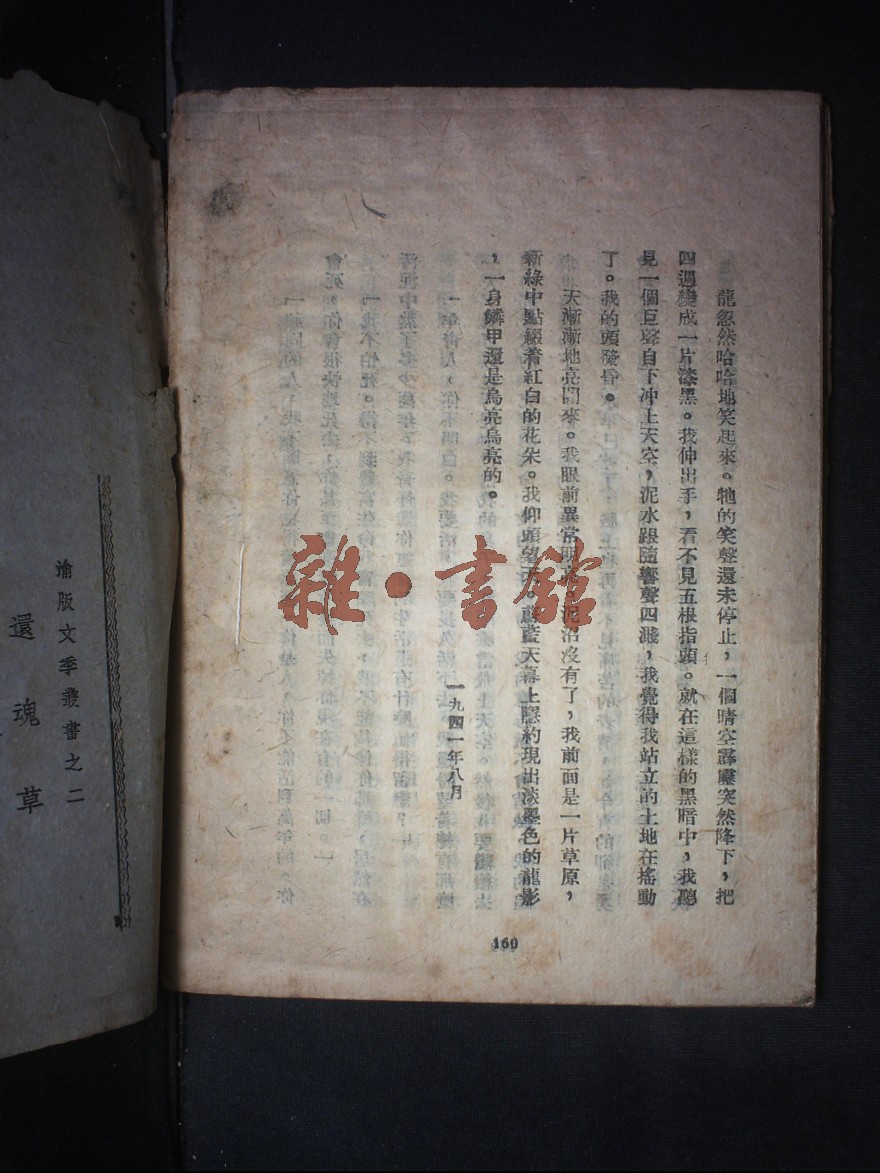 龍忽然哈哈地笑起來。牠的笑聲還未停止，一個晴空霹靂突然降下，把
四週變成一片漆黑。我伸出手，看不見五根指頭。就在這樣的黑暗中，我聽
見一個巨聲自下冲上天空，泥水跟隨響聲四濺，我覺得我站立的土地在搖動
了。我的頭發昏。
天漸漸地亮開來。我眼前異常明亮。泥沼沒有了，我前面是一片草原，
新綠中點綴着紅白的花朵。我仰頭望天。蔚藍天幕上隱約現出淡墨色的龍影
，一身鱗甲還是烏亮烏亮的。
一九四一年八月
160
雜·書館
渝版文季叢書之二
還魂草